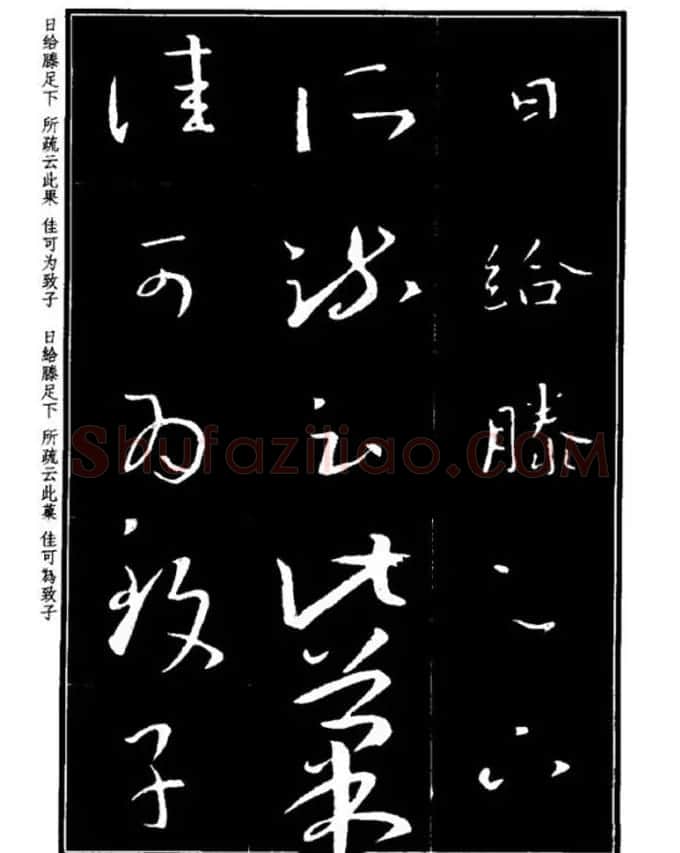 日给滕足下
所疏云此菓
佳可为致子
日给滕足下 所疏云此果 佳可为致子
日給滕足下 所疏云此菓 佳可為致子
Shufaziliao.COM